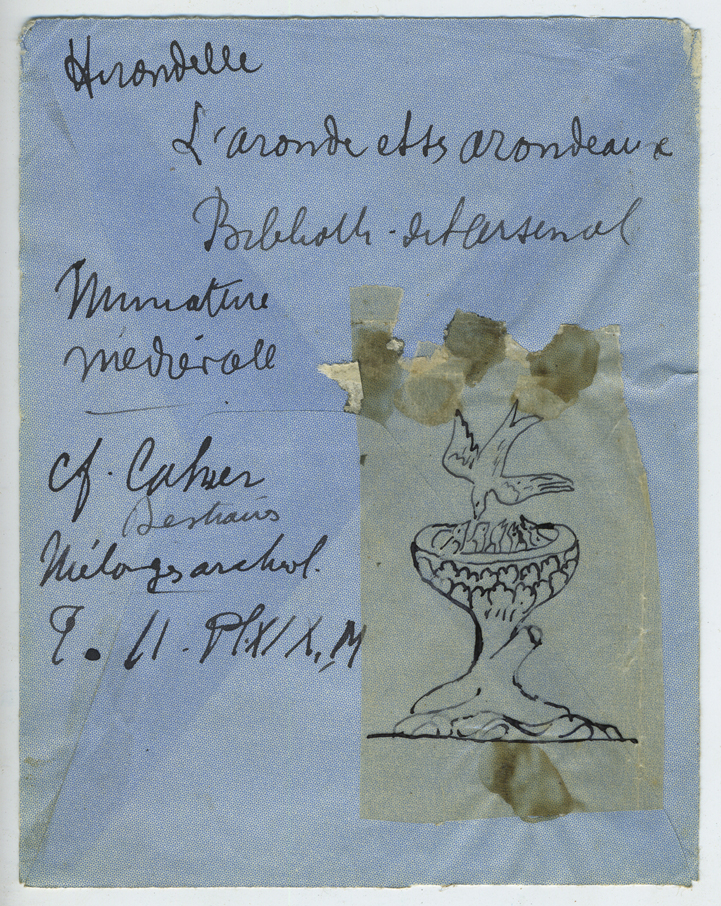 Hirondelle
L'aronde et ses arondeaux
Biblioth. de l'Arsenal
Miniature
médiévale
cf. Cahier
Bestiaires
Mélanges archéol.
T. II. Pl. XIX, M